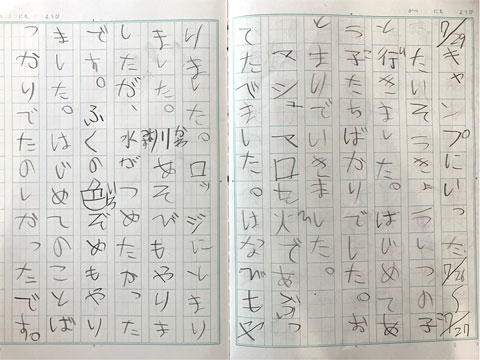 がつ にち ようび
7/29 キャンプにいった 7/26〜7/27
たいそうきょうしつの子
と行きました。はじめてあ
う子ばかりでした。お
とまりでいきました。
マシュマロも火であぶっ
てたべました。はなびもや
りました。ロッジにとまり
ました。川あそびもやりま
したが、水がつめたかった
です。ふくの色ぞめもやり
ました。はじめてのことば
っかりでたのしかったです。